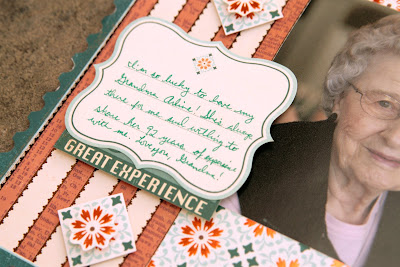 I'm so lucky to have my
Grandma Arline! She's always
there for me and willing to
share her 92 years of experience
with me. Love you, Grandma!
GREAT EXPERIENCE